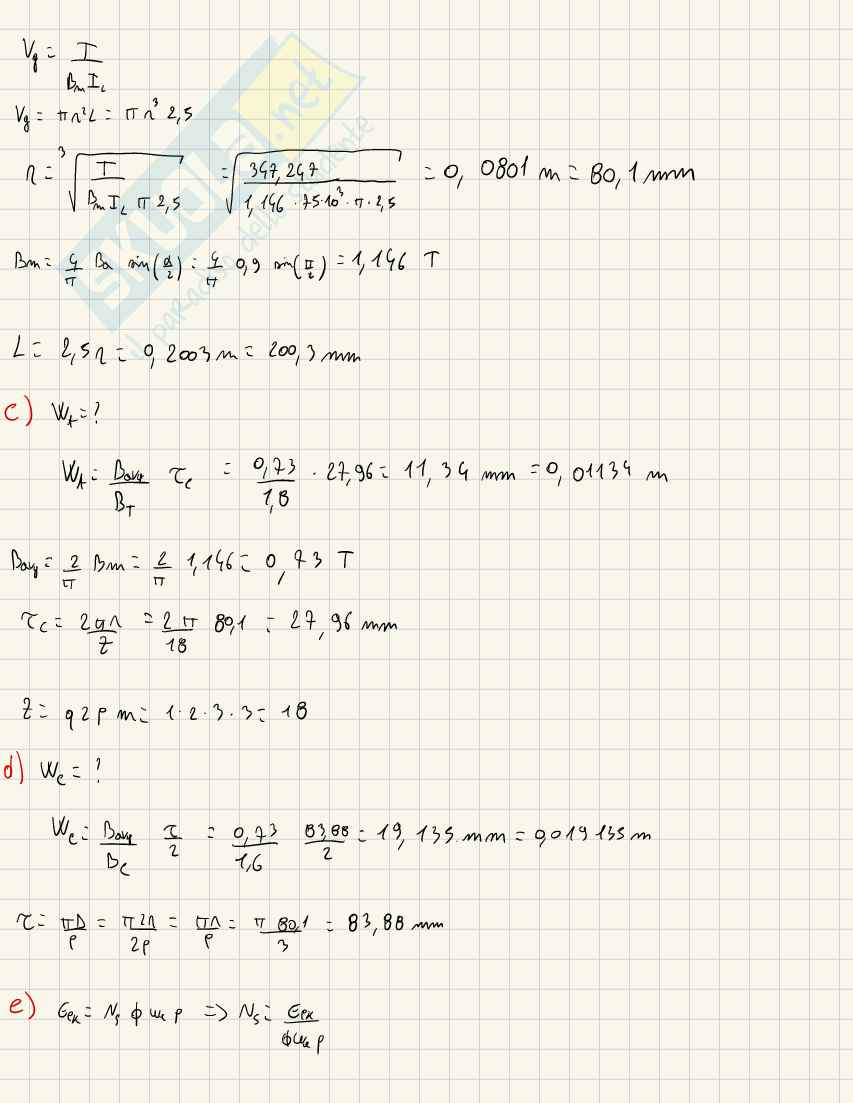 Vg = T / (Bm IL)
Vg = πr²L = πr³ 2,5
r = ³√(T / (Bm IL π 2,5)) = √(347,247 / (1,146 · 75·10³ · π · 2,5)) = 0,0801 m = 80,1 mm
Bm = 4/π Ba sin(α/2) = 4/π 0,9 sin(π/2) = 1,146 T
L = 2,5r = 0,2003 m = 200,3 mm
c) Wt = ?
Wt = Bavg/BT τc = 0,73/1,8 · 27,96 = 11,34 mm = 0,01134 m
Bavg = 2/π Bm = 2/π 1,146 = 0,73 T
τc = 2πr/Z = 2π/18 80,1 = 27,96 mm
Z = q 2p m = 1·2·3·3 = 18
d) Wc = ?
Wc = Bavg/Bc τ/2 = 0,73/1,6 83,88/2 = 19,135 mm = 0,019135 m
τ = πD/p = π2r/2p = πr/p = π 80,1/3 = 83,88 mm
e) Epk = Ns ϕ ωm p => Ns = Epk/(ϕ ωm p)
skuola.net
il paradiso dello studente